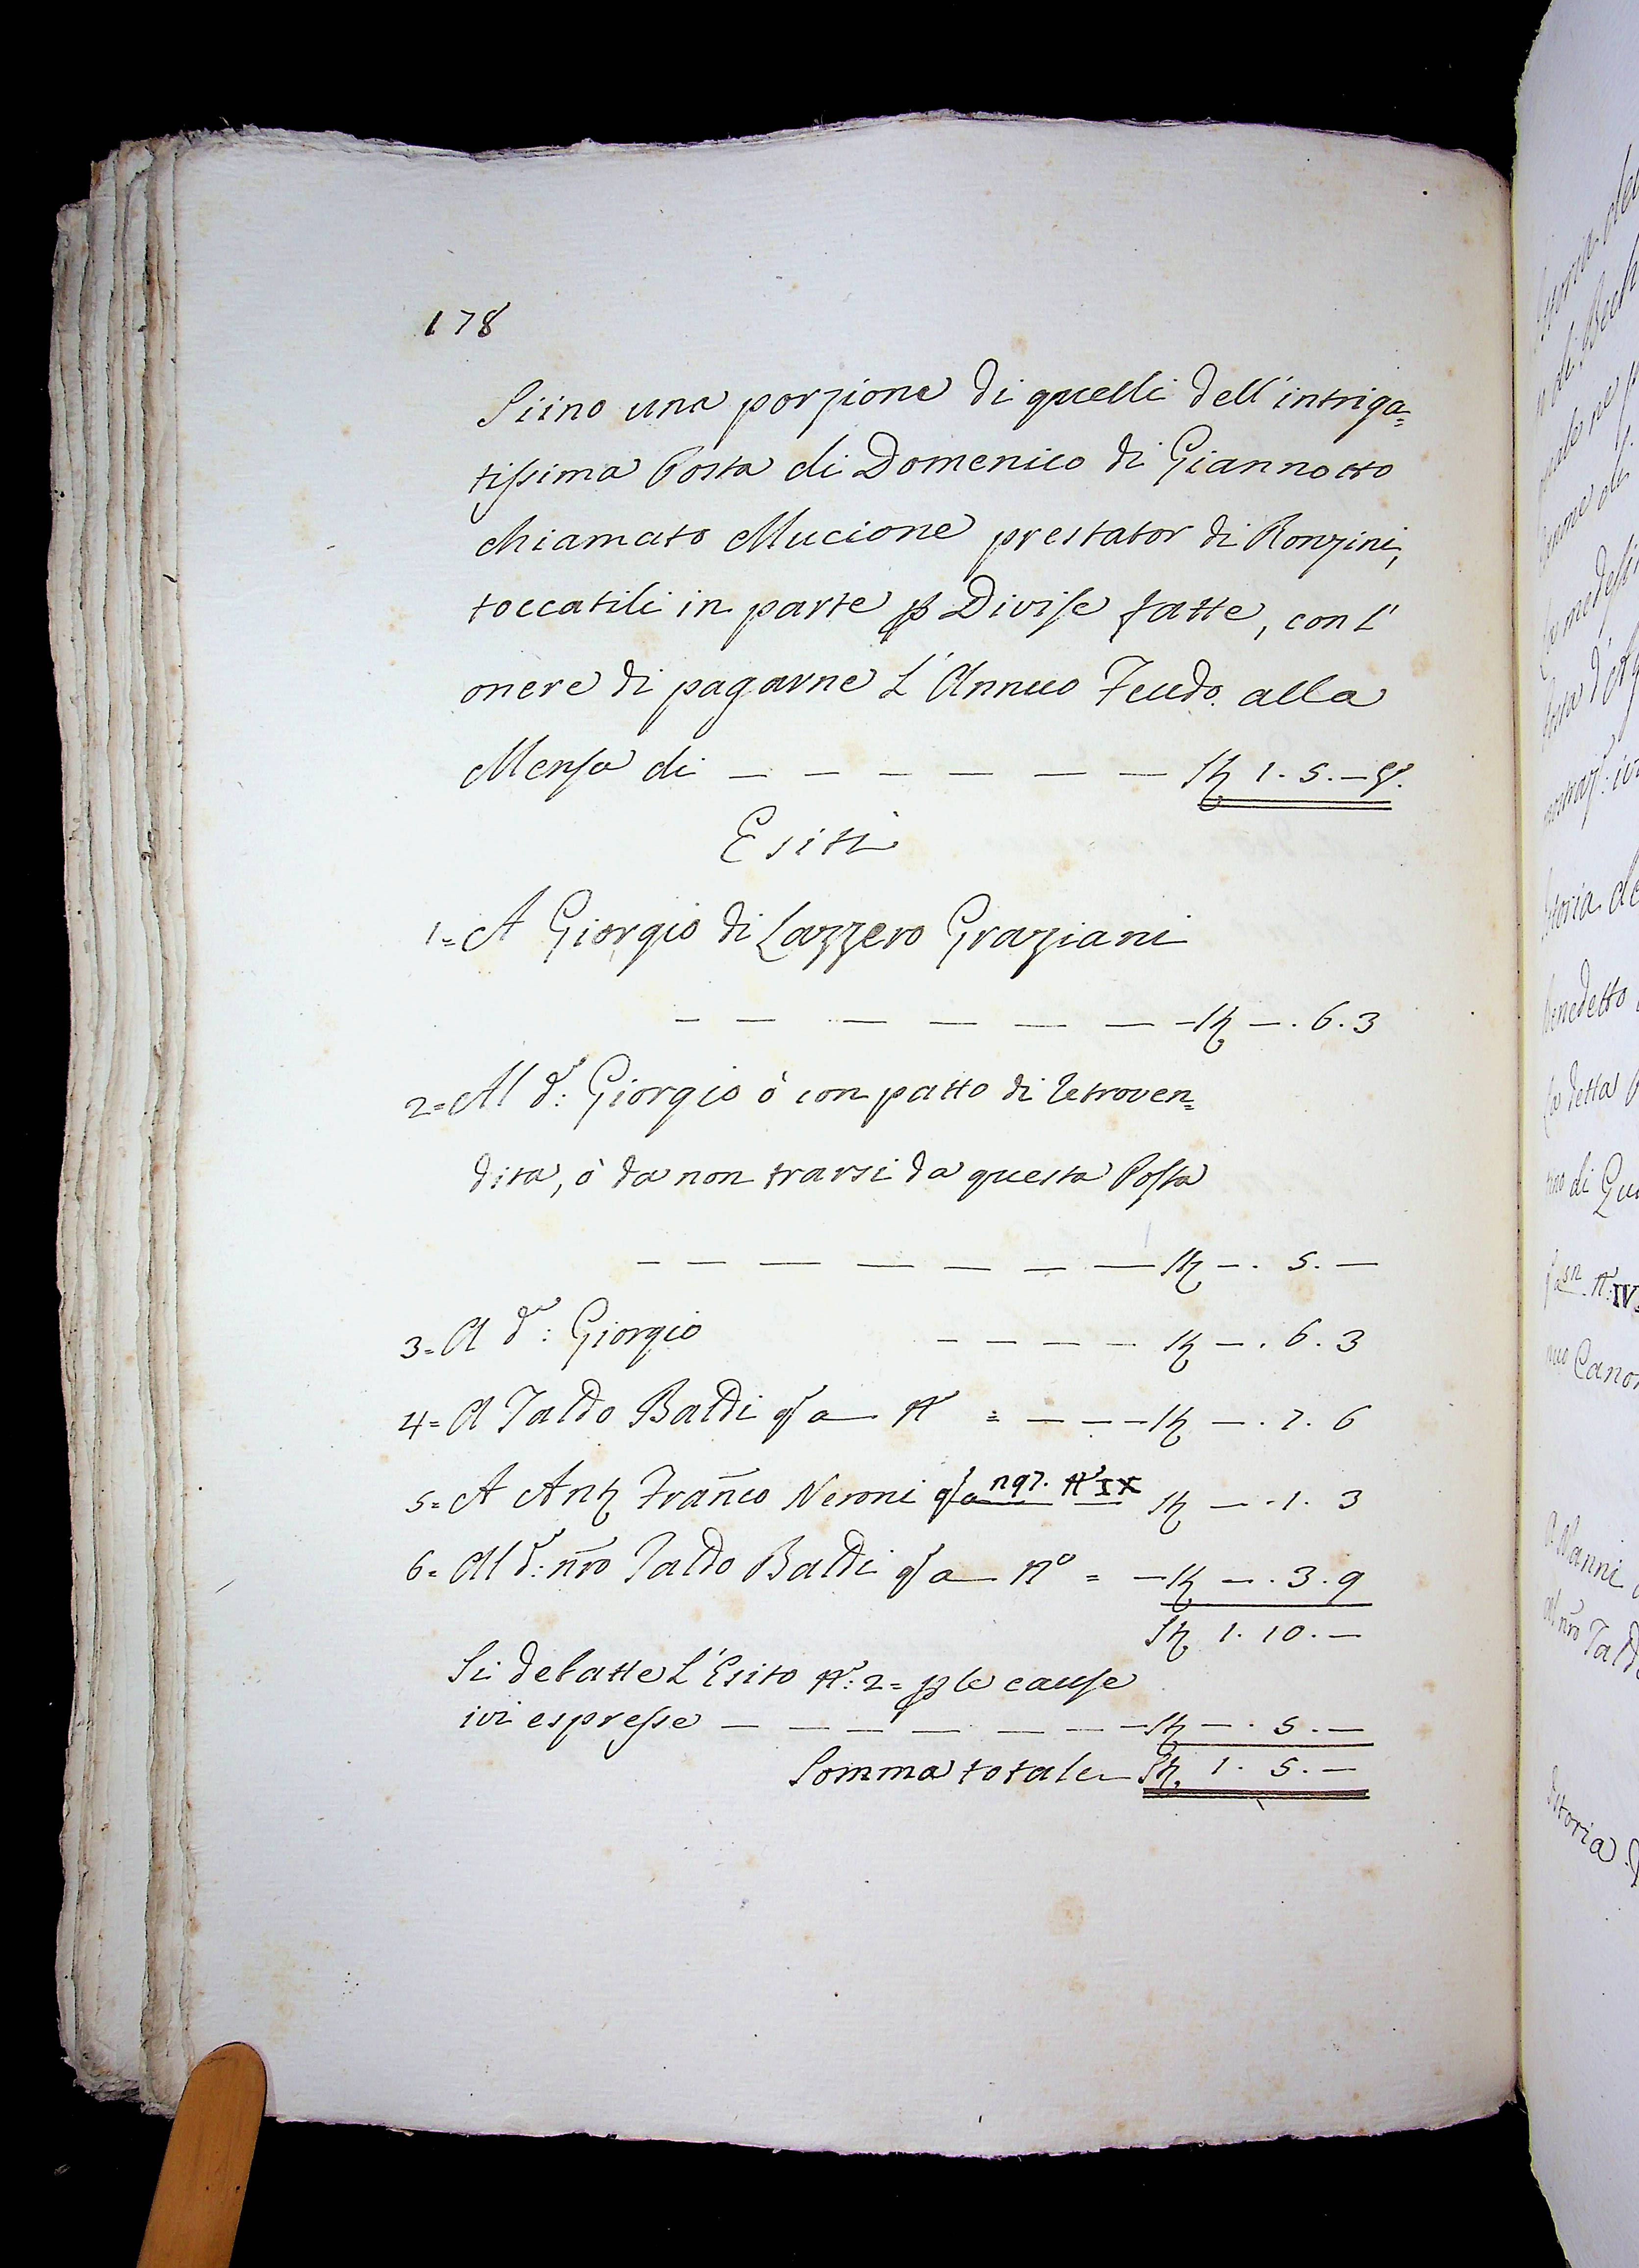 178
Siino una porzione di quelli dell'intriga=
tissima Posta di Domenico di Giannotto
chiamato Mucione prestator di Ronzini,
toccatili in parte p Divise fatte, con l'
onere di pagarne l'Annuo Feudo alla
Mensa di — — — — — — St 1. 5. —
Esiti
1= A Giorgio di Lazzero Graziani
— — — — — — — St —. 6. 3
2= Al d:º Giorgio ò con patto di retroven=
dita, ò da non trarsi da questa Posta
— — — — — — — — St —. 5. —
3= A d:º Giorgio — — — — St —. 6. 3
4= A Taldo Baldi qª a — Nº = — — — St —. 7. 6
5= A Antº Franco Neroni qª a 197. Nº IX St —. 1. 3
6= Al d:º nro Taldo Baldi qª a — Nº = — St —. 3. 9
St 1. 10. —
Si debatte l'Esito Nº: 2= p le cause
ivi espresse — — — — — — — St —. 5. —
Somma totale — St. 1. 5. —
Benedetto
la detta
no di
Nº: IV
Canon
A Vanni
Al nro Tald